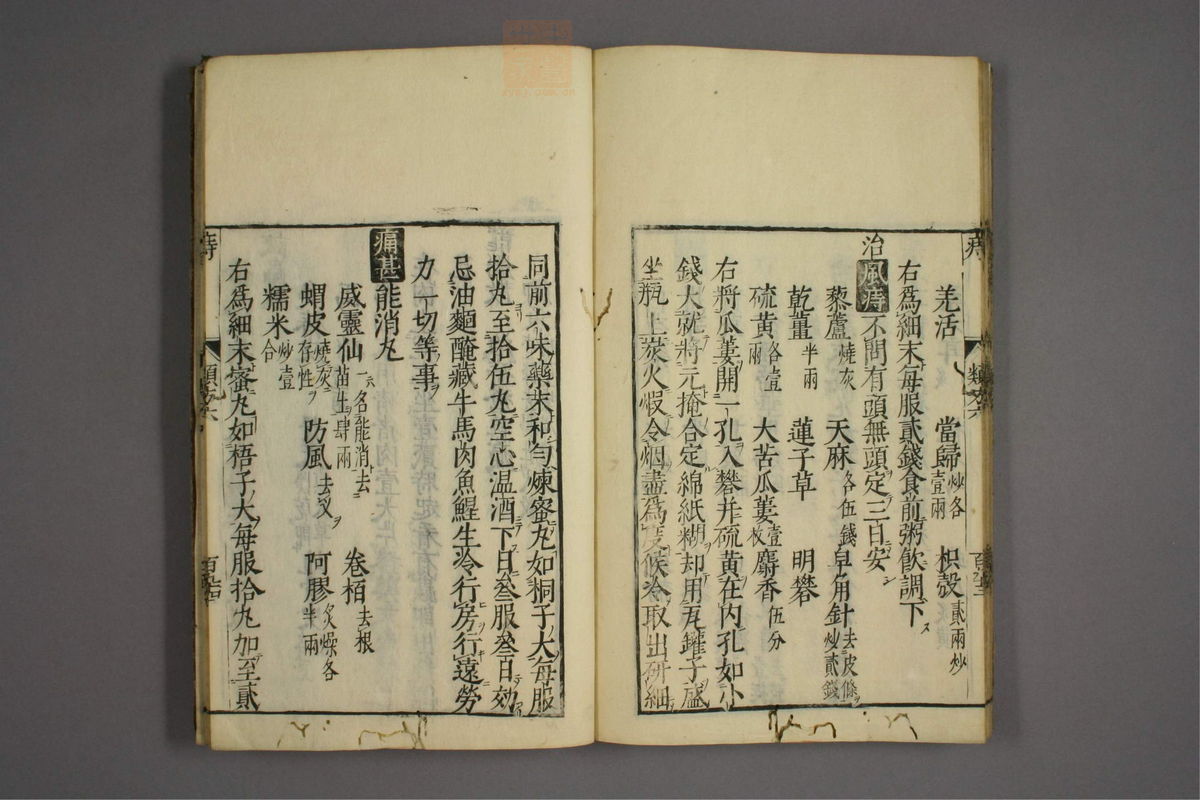 羌活 當歸炒各壹兩 枳殼貳兩炒
右爲細末每服貳錢食前粥飲調下
治風痔不問有頭無頭定三日安
藜蘆燒灰 天麻各伍錢 皁角針去皮條炒貳錢
乾薑半兩 蓮子草 明礬
硫黃各壹兩 大苦瓜蔞壹枚 麝香伍分
右將瓜蔞開一孔入礬并硫黃在內孔如小
錢大就將元掩合定綿紙糊却用瓦鑵子盛
坐瓶上炭火煅令烟盡爲度候冷取出研細
同前六味藥末和勻煉蜜丸如桐子大每服
拾丸至拾伍丸空心温酒下日叄服叄日効
忌油麵醃藏牛馬肉魚鯹生冷行房行遠勞
力一切等事
痛甚能消丸
威靈仙一名能消去苗土肆兩 卷栢去根
蝟皮燒灰存性 防風去叉 阿膠炙燥各半兩
糯米炒壹合
右爲細末蜜丸如梧子大每服拾丸加至貳
痔
類方六